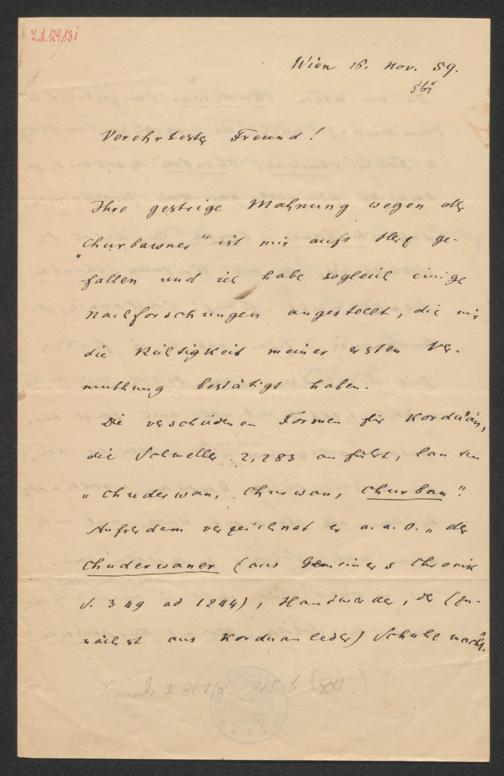 J.N. 129.831
Wien 16. Nov. 59.
Verehrtester Freund!
Ihre gestrige Mahnung wegen der
„Churbawner" ist mir aufs Herz ge-
fallen und ich habe sogleich einige
Nachforschungen angestellt, die mir
die Richtigkeit meiner ersten Ver-
muthung bestätigt haben.
Die verschiedenen Formen für Korduan,
die Schmeller 2,283 anführt, lauten
„Chuderwan, Churwan, Churban".
Außerdem verzeichnet er a. a. O. „der
Chuderwaner (aus Gemeiners Chronik
S. 349 ad 1244), Handwerker, der (zu-
nächst aus Korduanleder) Schuhe macht".
I 862/2 915.b (XXI)